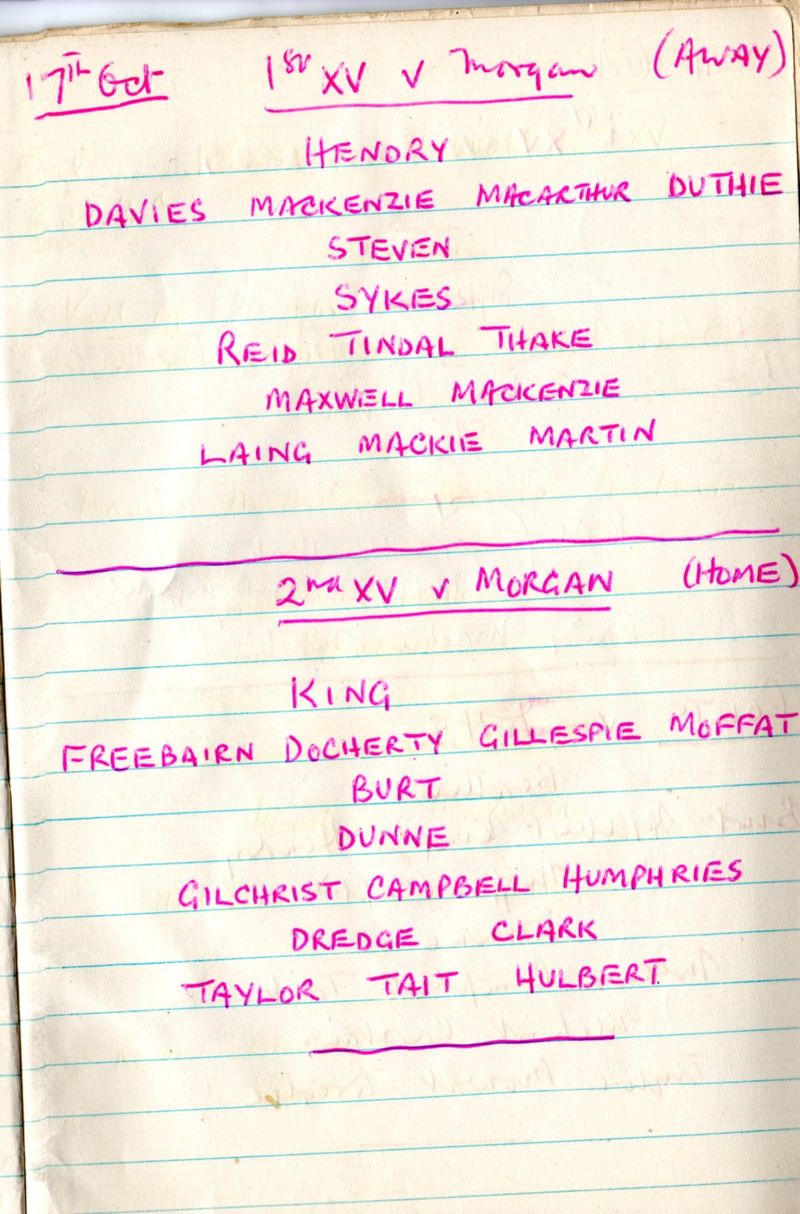 17th Oct 1st XV v Morgan (AWAY)
HENDRY
DAVIES MACKENZIE MACARTHUR DUTHIE
STEVEN
SYKES
REID TINDAL THAKE
MAXWELL MACKENZIE
LAING MACKIE MARTIN
2nd XV v MORGAN (HOME)
KING
FREEBAIRN DOCHERTY GILLESPIE MOFFAT
BURT
DUNNE
GILCHRIST CAMPBELL HUMPHRIES
DREDGE CLARK
TAYLOR TAIT HULBERT